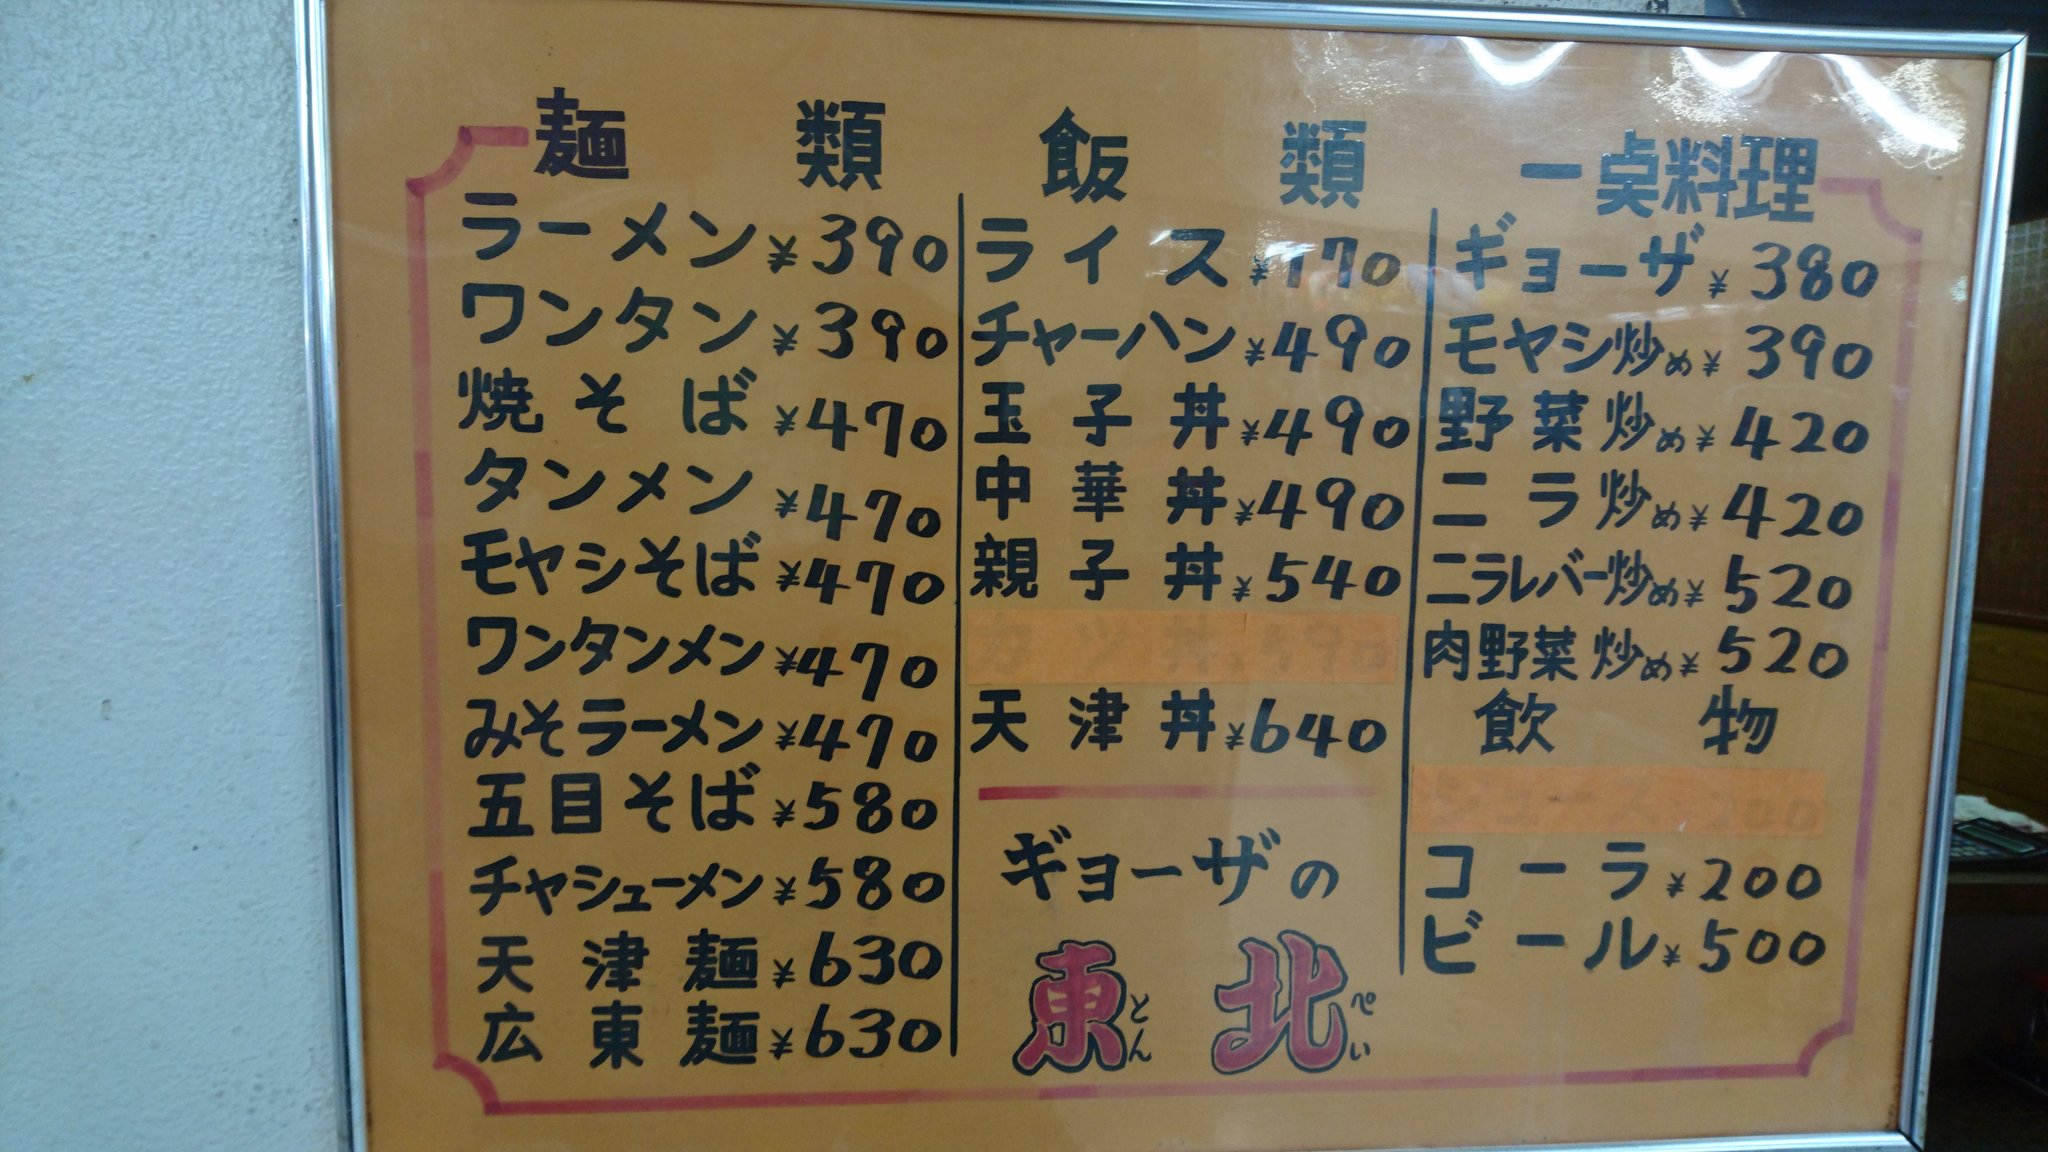 麺類
ラーメン ¥390
ワンタン ¥390
焼そば ¥470
タンメン ¥470
モヤシそば ¥470
ワンタンメン ¥470
みそラーメン ¥470
五目そば ¥580
チャシューメン ¥580
天津麺 ¥630
広東麺 ¥630
飯類
ライス ¥170
チャーハン ¥490
玉子丼 ¥490
中華丼 ¥490
親子丼 ¥540
カツ丼 ¥590
天津丼 ¥640
ギョーザの
東北
とん
ぺい
一卓料理
ギョーザ ¥380
モヤシ炒め ¥390
野菜炒め ¥420
ニラ炒め ¥420
ニラレバー炒め ¥520
肉野菜炒め ¥520
飲物
ジュース 200
コーラ ¥200
ビール ¥500